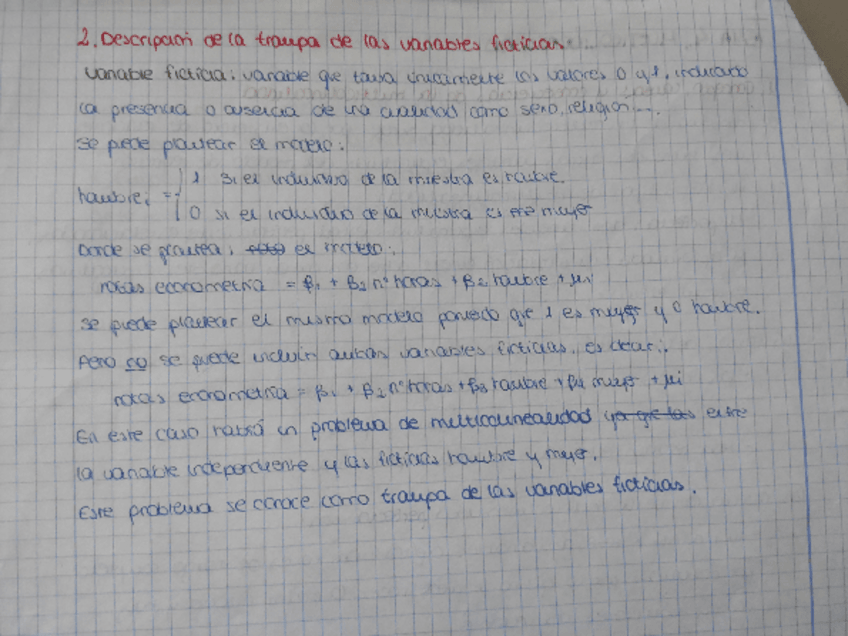 2. Descripción de la trampa de las variables ficticias.
Variable ficticia: variable que toma únicamente los valores 0 y 1, indicando
la presencia o ausencia de una cualidad como sexo, religión....
Se puede plantear el modelo:
hombrei = { 1 si el individuo de la muestra es hombre.
0 si el individuo de la muestra es mujer
Donde se plantea: el modelo:
notas econometría = β1 + β2 nº horas + β2 hombre + μi
Se puede plantear el mismo modelo poniendo que 1 es mujer y 0 hombre.
Pero no se puede incluir ambas variables ficticias, es decir:
notas econometría = β1 + β2 nº horas + β3 hombre + β4 mujer + μi
En este caso habrá un problema de multicolinealidad ya que las entre
la variable independiente y las ficticias hombre y mujer.
Este problema se conoce como trampa de las variables ficticias.